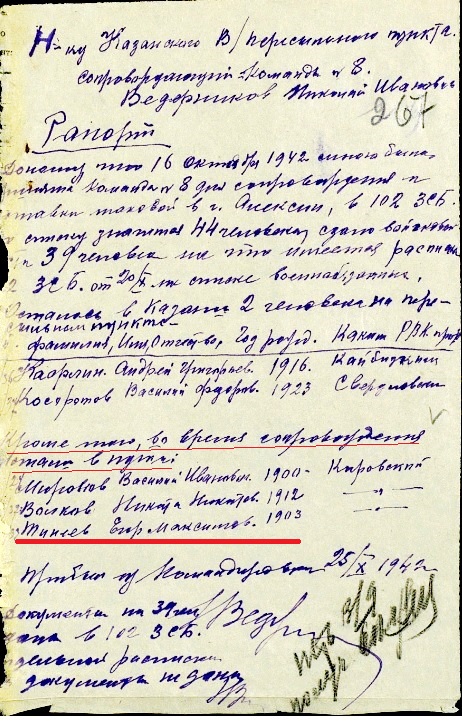 Н-ку Казанского В/пересыльного пункта.
сопровождающий команды № 8.
Ведерников Николай Иванович
267
Рапорт
Доношу что 16 октября 1942 мною была
принята команда № 8 для сопровождения и
ставки таковой в г. Алексин, в 102 ЗСБ.
списку значится 44 человека, сдано
39 человек на что имеется расписка
ЗСБ. от 20/X. и списке военнообязанных.
Осталось в Казани 2 человека на пере-
сыльном пункте
фамилия, Имя, Отчество, Год рожд. Каким РВК
Андрей Григорьев. 1916.
Василий Федоров. 1923 Свердловским
Кроме того, во время сопровождения
отстали в пути:
Василий Иванович. 1900 - Кировский
Волков Никита Никитов. 1912 - " -
Егор Максимов. 1903 - " -
Прибыл из Командировки 25/X 1942
Документы на 39 чел
дана в 102 ЗСБ.
дельная расписка
документы не дана